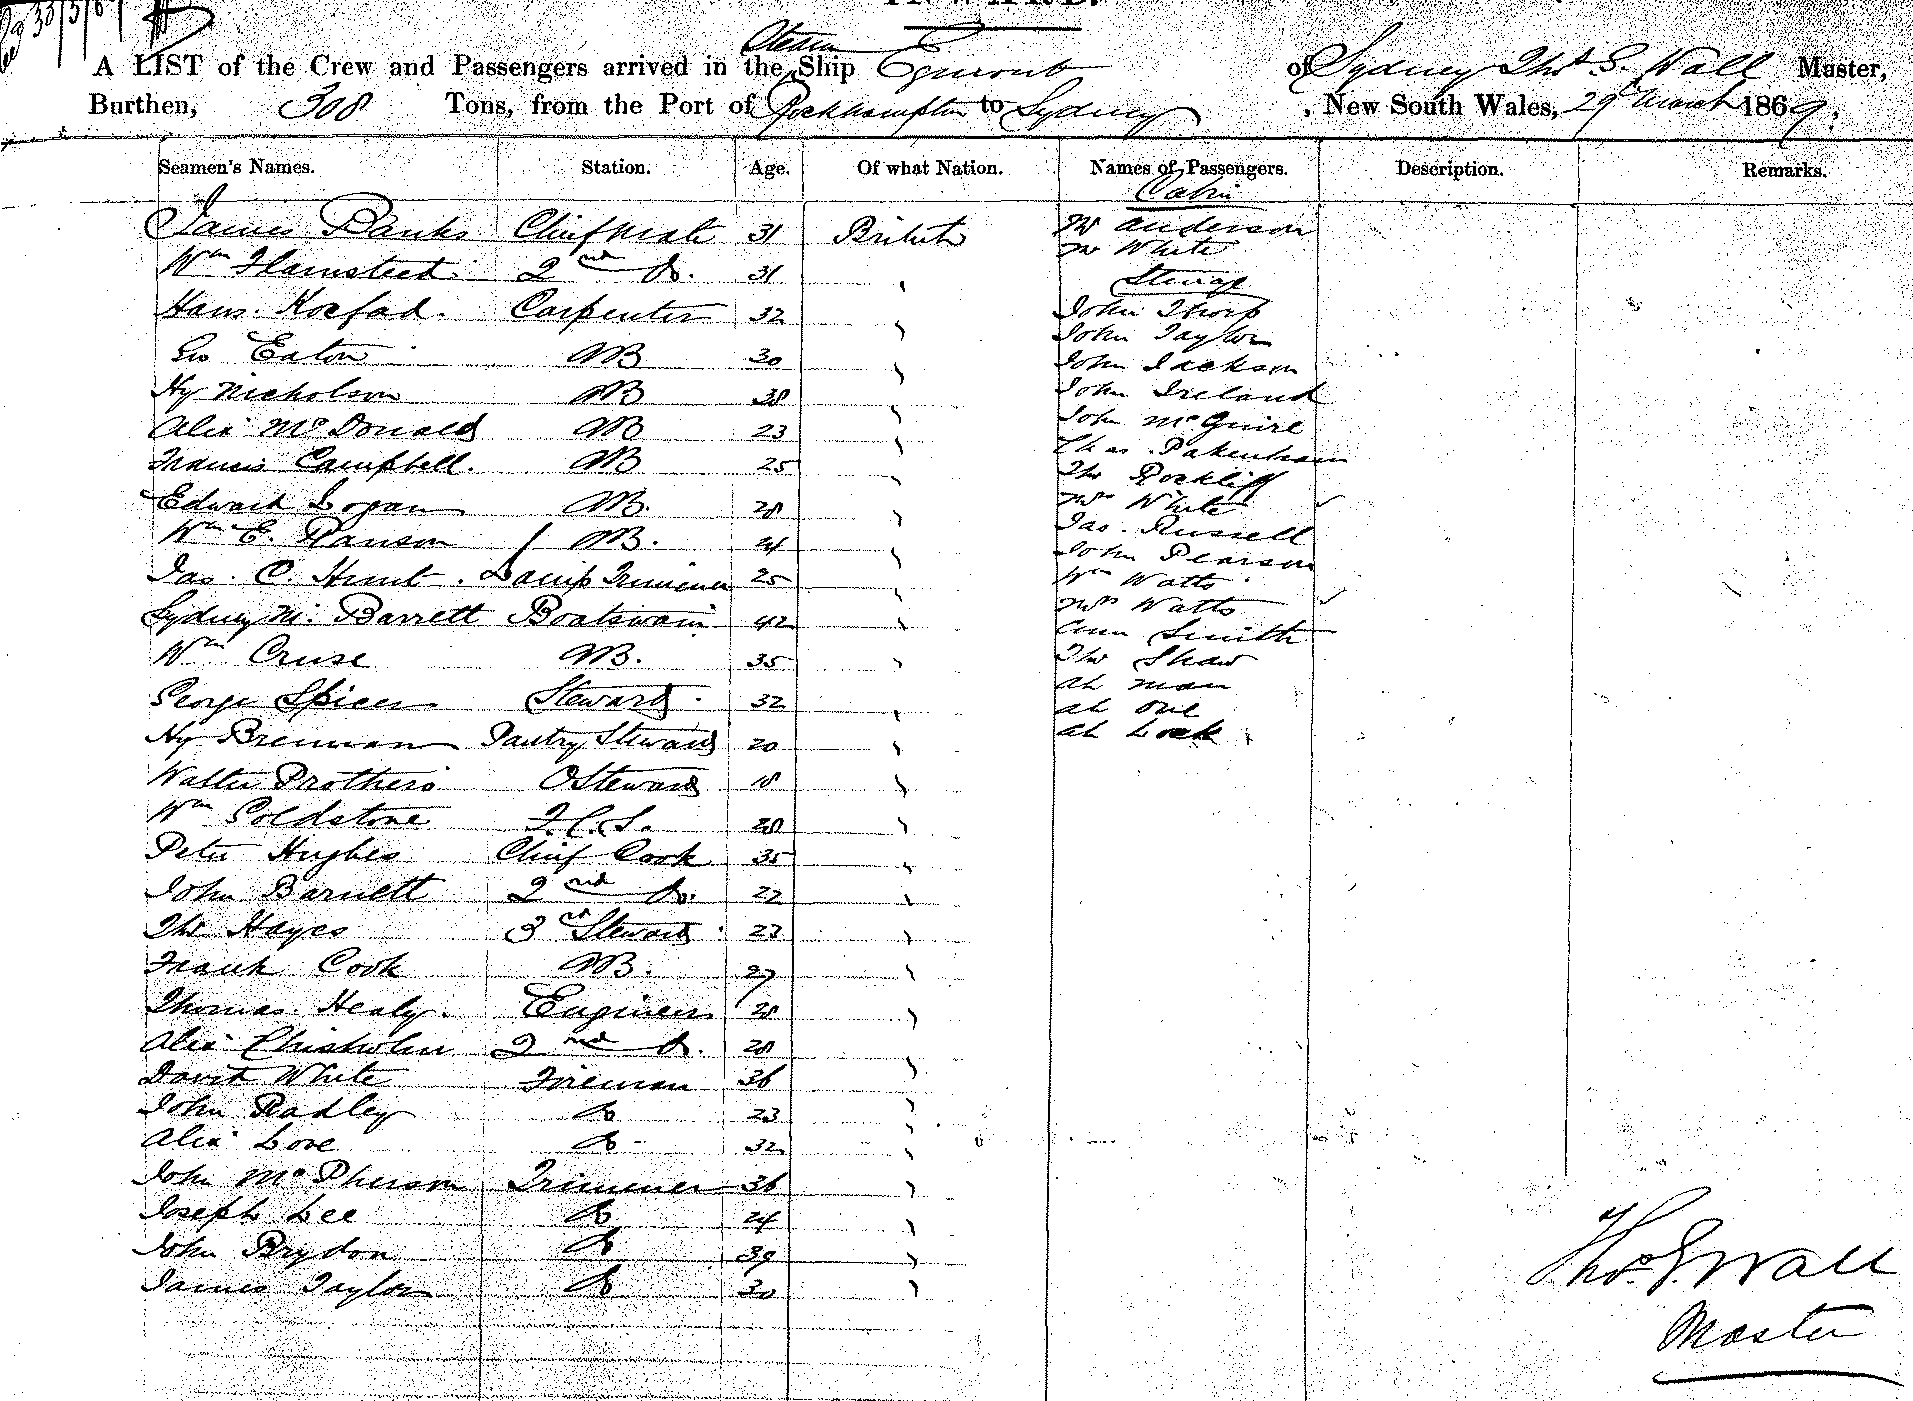 INWARD.
A LIST of the Crew and Passengers arrived in the Steam Ship Egmont of Sydney Thos. S. Wall Master,
Burthen, 308 Tons, from the Port of Rockhampton to Sydney, New South Wales, 29th March 1869,
Seamen's Names. Station. Age. Of what Nation. Names of Passengers. Description. Remarks.
Cabin
James Banks Chief Mate 31 British Mr Anderson
Mr White
Wm Flamsteed 2nd Do. 31 "
Steerage
Hans Koefad. Carpenter 32 " John Thorp
John Taylor
Geo Eaton AB 30 " John Jackson
Hy Nicholson AB 38 " John Ireland
Alexr McDonald AB 23 " John McGuire
Francis Campbell. AB 25 " Chas. Pakenham
Thos Rockliff
Edward Logan AB. 28 " Mrs White
Wm E. Ranson AB. 24 " Jas. Russell
John Pearson
Jas. C. Hunt. Lamp Trimmer 25 " Wm Watts
Sydney M. Barrett Boatswain 42 " Mrs Watts
Ann Smith
Wm Cruse AB. 35 " Thos Shaw
George Spicer Steward. 32 " Ah man
Ah One
Hy Brennan Pantry Steward 20 " Ah Lock
Walter Prothero O Steward 18 "
Wm Goldstone F.C.S. 28 "
Peter Hughes Chief Cook 35 "
John Barnett 2nd Do. 22 "
Thos Hayes 3rd Steward 23 "
Frank Cook AB. 27 "
Thomas Healy. Engineer 28 "
Alexr Chisholm 2nd Do. 28 "
David White Fireman 36 "
John Radley Do 23 "
Alexr Love Do 32 "
John McPherson Trimmer 36 "
Joseph Lee Do 24 "
John Brydon Do 39 "
James Taylor Do 30 "
Thos. S. Wall
Master